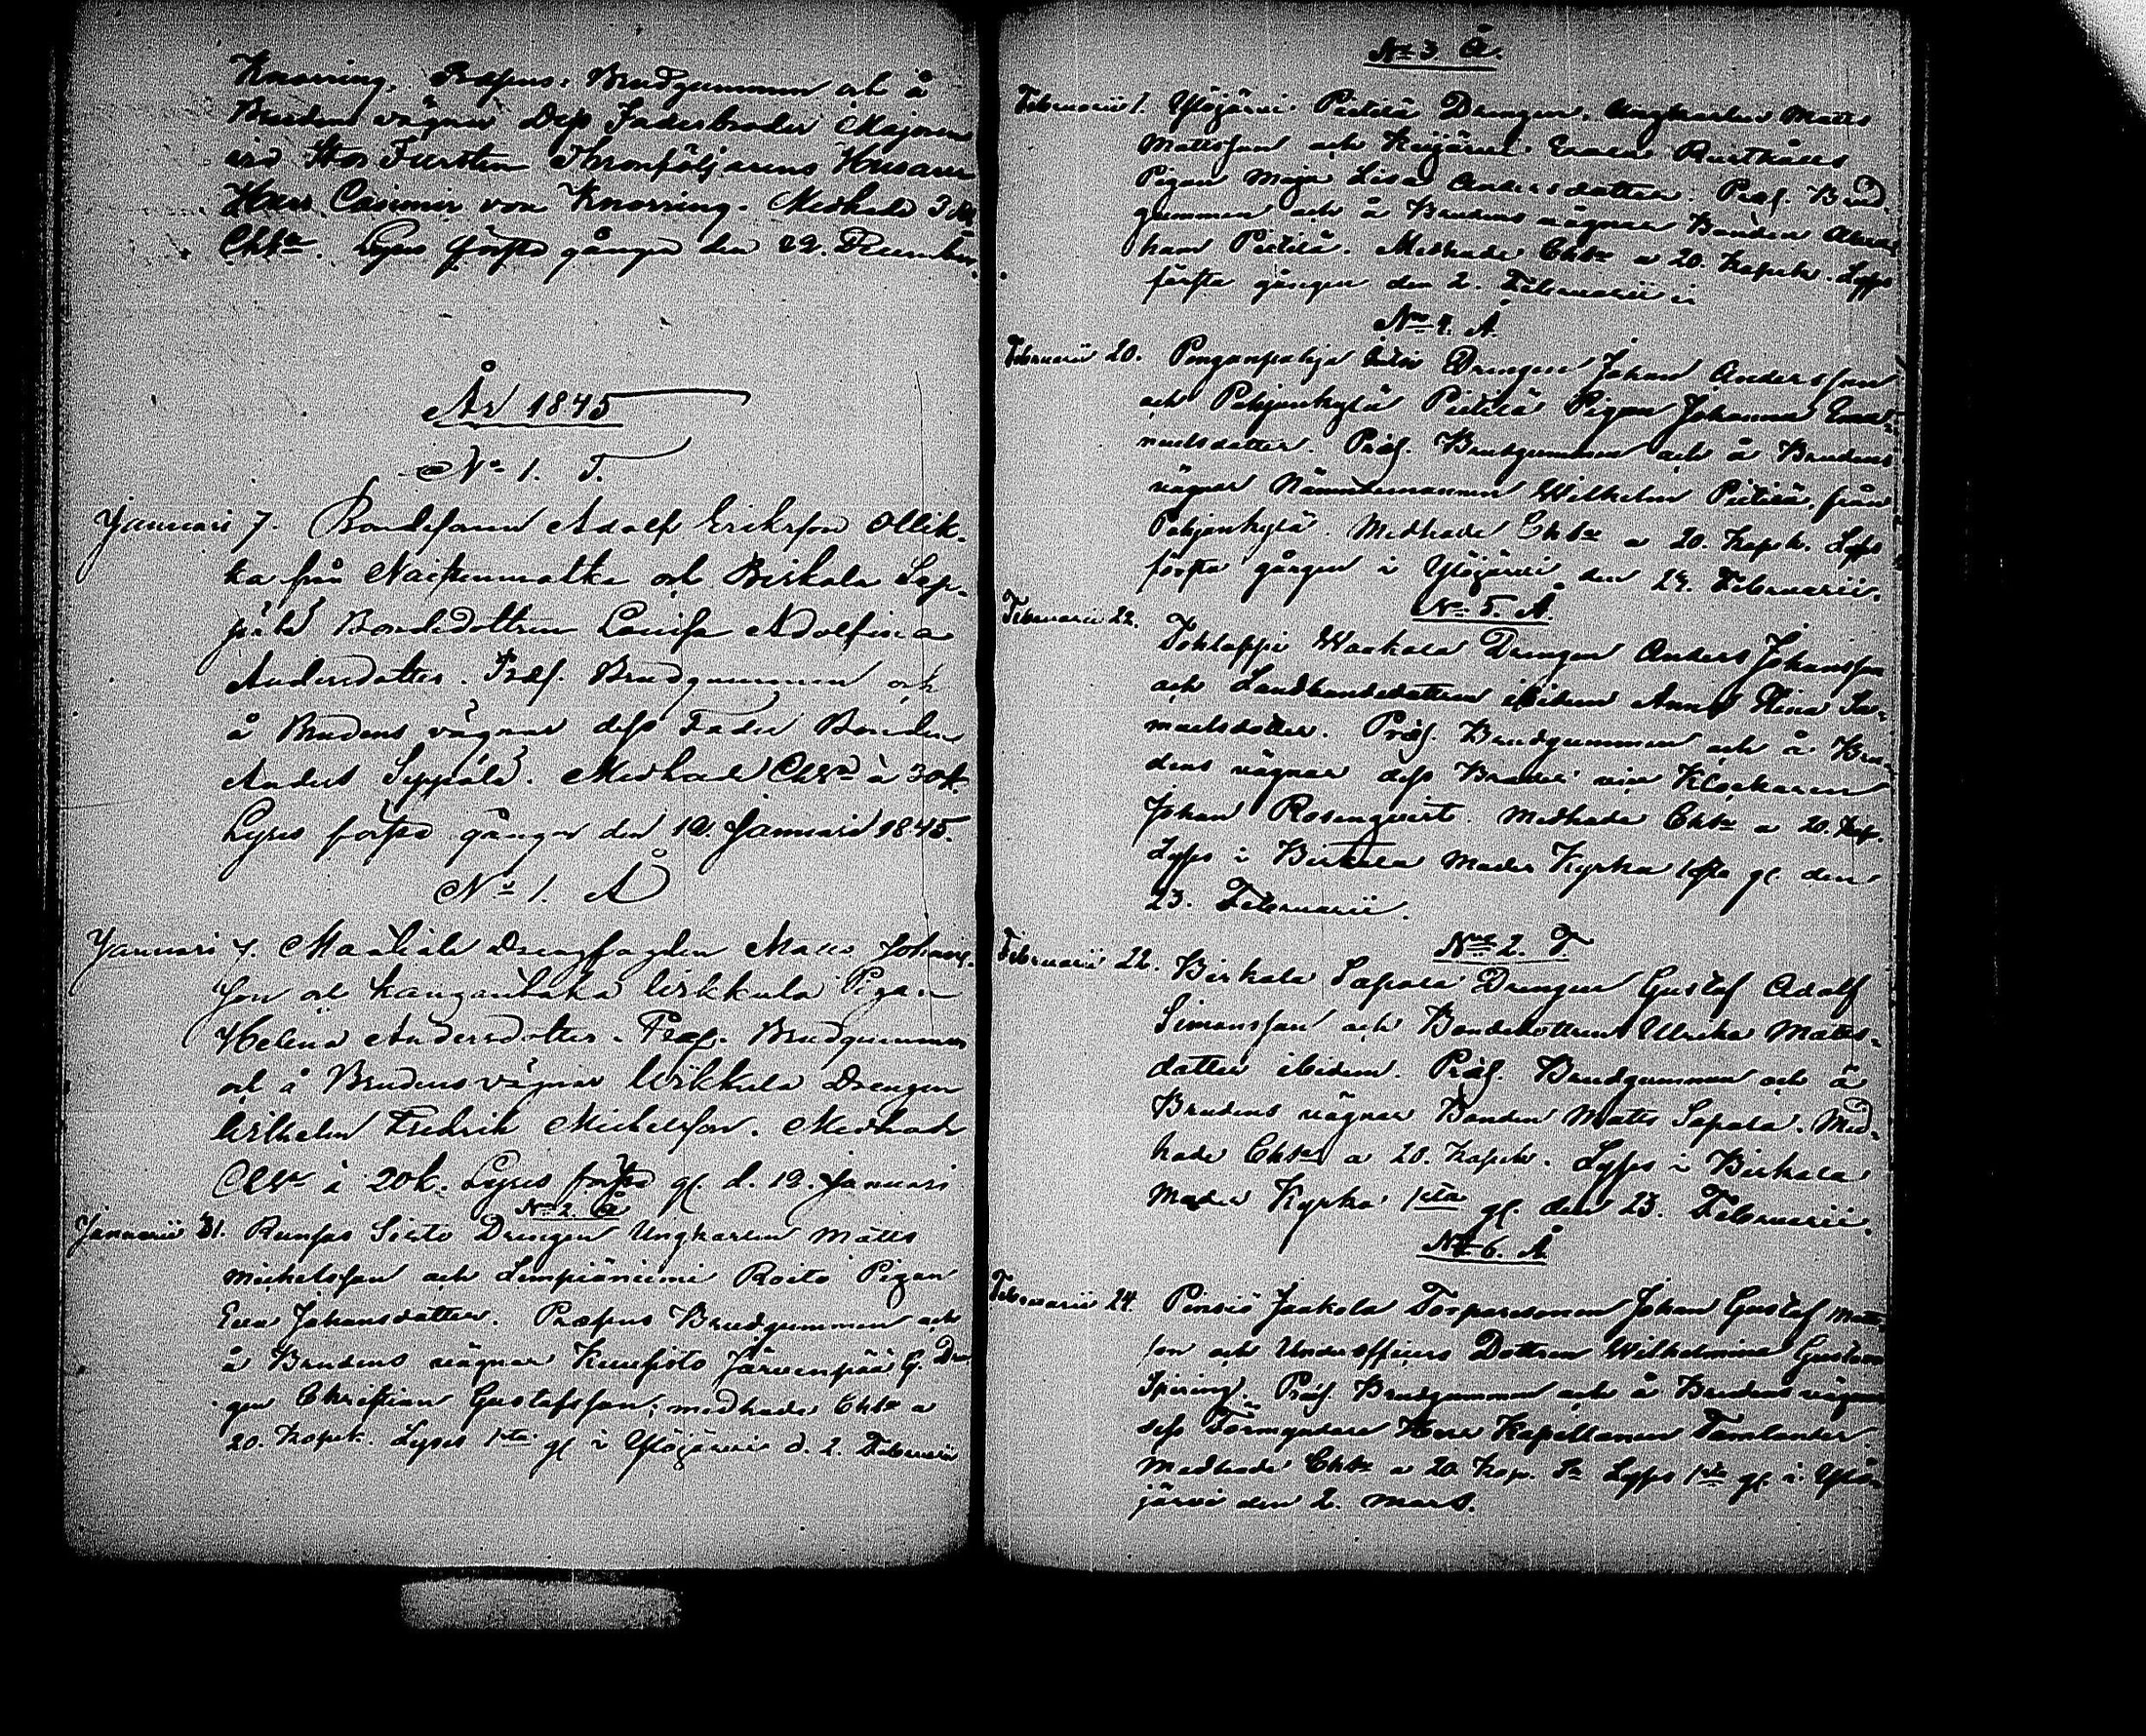 Knorring. Præsens: Brudgummen och å
Brudens vägnar dess Faderbroder Majoren
vid Stor Fursten Thronföljarens Husarer
Herr Casimir von Knorring. Medhade 3 Rub
Chtæ. Lyses första gången den 22. December.
År 1845
No 1. T.
Januari 7. Bondesonen Adolf Eriksson Ollik-
ka från Naistenmatka och Birkala Sep-
pälä Bondedottren Lovisa Adolfina
Andersdotter. Præs. Brudgummen och
å Brudens vägnar dess Fader Bonden
Anders Seppälä. Medhade Chtæ à 30 k.
Lyses första gången den 12. Januari 1845.
No 1. Å
Januari 7. Mattila Drengfogden Matts Johans-
son och Kangantaka Uskkula Pigan
Helena Andersdotter. Præs. Brudgummen
och å Brudens vägnar Uskkula Drengen
Wilhelm Fredrik Michelsson. Medhade
Chtæ à 20 k. Lyses första g. d. 12. Januari
No 2. Å
Januarii 31. Runsas Sisto Drengen Ungkarlen Matts
Michelsson och Lempiäniemi Roito Pigan
Eva Johansdotter. Præsens Brudgummen och
å Brudens vägnar Kuusisto Järvenpää G. Dr
gen Christian Gustafsson; medhade Chtæ a
20. Kopek. Lyses 1sta g. i Ylöjärvi d. 2. Februarii
No 3 Å.
Februarii 1. Ylöjärvi Pietilä Drengen, Ungkarlen Matts
Mattsson och Keijärvi
Pigan Maja Lisa Andersdotter. Præs. Brud-
gummen och å Brudens vägnar Bonden Abra-
ham Pietilä. Medhade Chtæ a 20. Kopek. Lyses
första gången den 2. Februarii
No 4. Å.
Februarii 20. Penganpohja Drengen Johan Andersson
och Pohjankylä Pietilä Pigan Johanna Ema-
nuelsdotter. Præs. Brudgummen och å Brudens
vägnar Nämndemannen Wilhelm Pietilä, från
Pohjankylä. Medhade Chtæ a 20. Kopek. Lyses
första gången i Ylöjärvi den 24. Februarii.
No 5. Å.
Februarii 22. Tohloppi Waakala Drengen Anders Johansson
och Landbondedottren ibidem Anna Stina Sa-
muelsdotter. Præs. Brudgummen och å Bru-
dens vägnar dess Broder vice Klockaren
Johan Rosenqvist. Medhade Chtæ a 20. Kop.
Lyses i Birkala Moder Kyrka 1sta g. den
23. Februarii.
No 2. T.
Februarii 22. Birkala Sapala Drengen Gustaf Adolf
Simonsson och Bondedottren Ulrika Matts-
dotter ibidem. Præs. Brudgummen och å
Brudens vägnar Bonden Matts Sapala. Med-
hade Chtæ a 20. Kopek. Lyses i Birkala
Moder Kyrka 1sta g. den 23. Februarii.
No 6. Å
Februarii 24. Pinsiö Jaakola Torparesonen Johan Gustaf Matts-
son och Underofficers Dottren Wilhelmina Gustava
Spiring. Præs. Brudgummen och å Brudens vägnar
dess Förmyndare Herr Kapellanen Tamlander.
Medhade Chtæ a 20. Kop. Sr Lyses 1sta g. i Ylö-
järvi den 2. Mars.